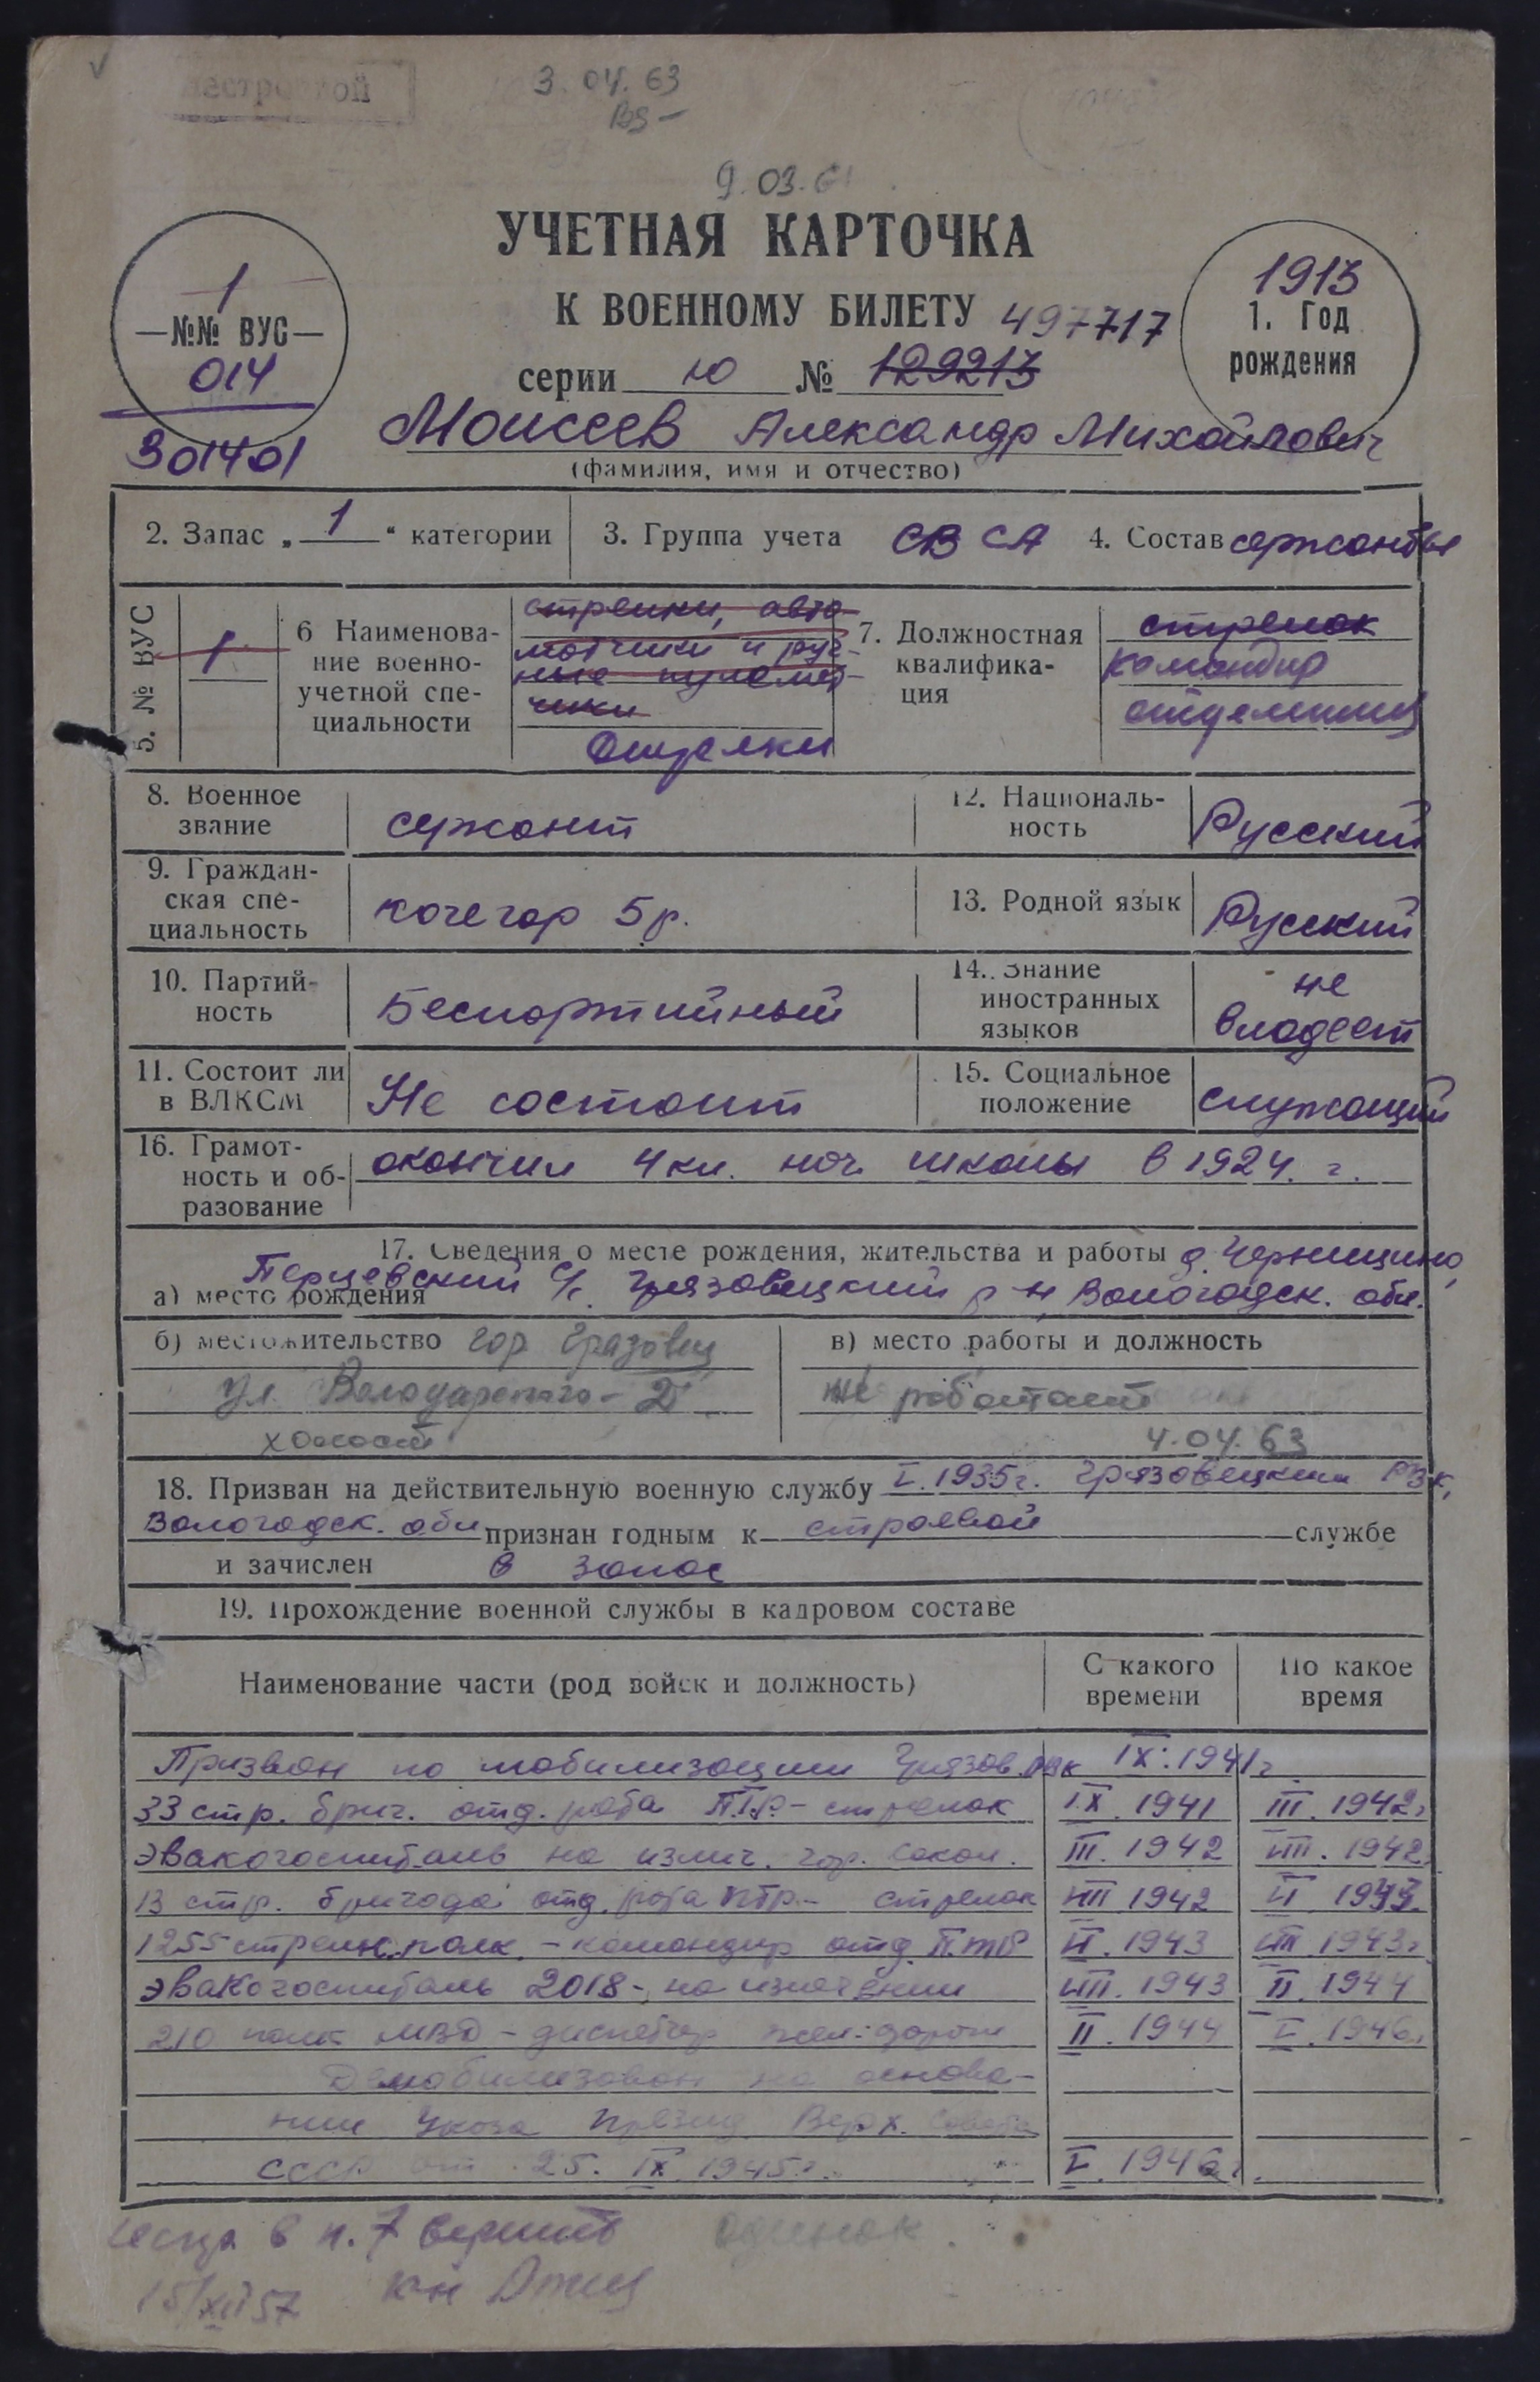 3. 04. 63
9. 03. 61
УЧЕТНАЯ КАРТОЧКА
К ВОЕННОМУ БИЛЕТУ 497717
серии ю № 129213
1
—№№ ВУС—
014
301401
1913
1. Год
рождения
Моисеев Александр Михайлович
(фамилия, имя и отчество)
2. Запас „ 1 “ категории
3. Группа учета СВ СА
4. Состав сержанты
5. № ВУС
1
6 Наименова-
ние военно-
учетной спе-
циальности
стрелки, авто
матчики и руч-
ные пулемет-
чики
Стрелки
7. Должностная
квалифика-
ция
стрелок
командир
отделения
8. Военное
звание
сержант
12. Националь-
ность
Русский
9. Граждан-
ская спе-
циальность
кочегар 5р.
13. Родной язык
Русский
10. Партий-
ность
Беспартийный
14. Знание
иностранных
языков
не
владеет
11. Состоит ли
в ВЛКСМ
Не состоит
15. Социальное
положение
служащий
16. Грамот-
ность и об-
разование
окончил 4 кл. нач. школы в 1924. г.
17. Сведения о месте рождения, жительства и работы д. Черницино,
а) место рождения Перцевский с/с. Грязовецкий р-н, Вологодск. обл.
б) местожительство гор Грязовец
ул. Володарского-
холост
в) место работы и должность
не работает
4.04.63
18. Призван на действительную военную службу I. 1935г. Грязовецким РВК,
Вологодск. обл признан годным к строевой службе
и зачислен в запас
19. Прохождение военной службы в кадровом составе
Наименование части (род войск и должность)
С какого
времени
По какое
время
Призван по мобилизации Грязов. РВК IX. 1941г
33 стр. бриг. отд. рота ПТР - стрелок IX. 1941 III. 1942г
Эвакогоспиталь на излеч. гор. Сокол. III. 1942 VIII. 1942
13 стр. бригада отд. рота ПТР - стрелок VIII 1942 VI 1943.
1255 стрелк. полк - командир отд. ПТР VI. 1943 VIII 1943г
эвакогоспиталь 2018 - на излечении VIII. 1943 II. 1944
210 полк МВД - диспетчер жел. дорог II. 1944 V. 1946г
Демобилизован на основа-
нии Указа Презид. Верх. Совета
СССР от 25. IX 1945г. V. 1946г.
в п. 7 верить одинок
15/XII 57